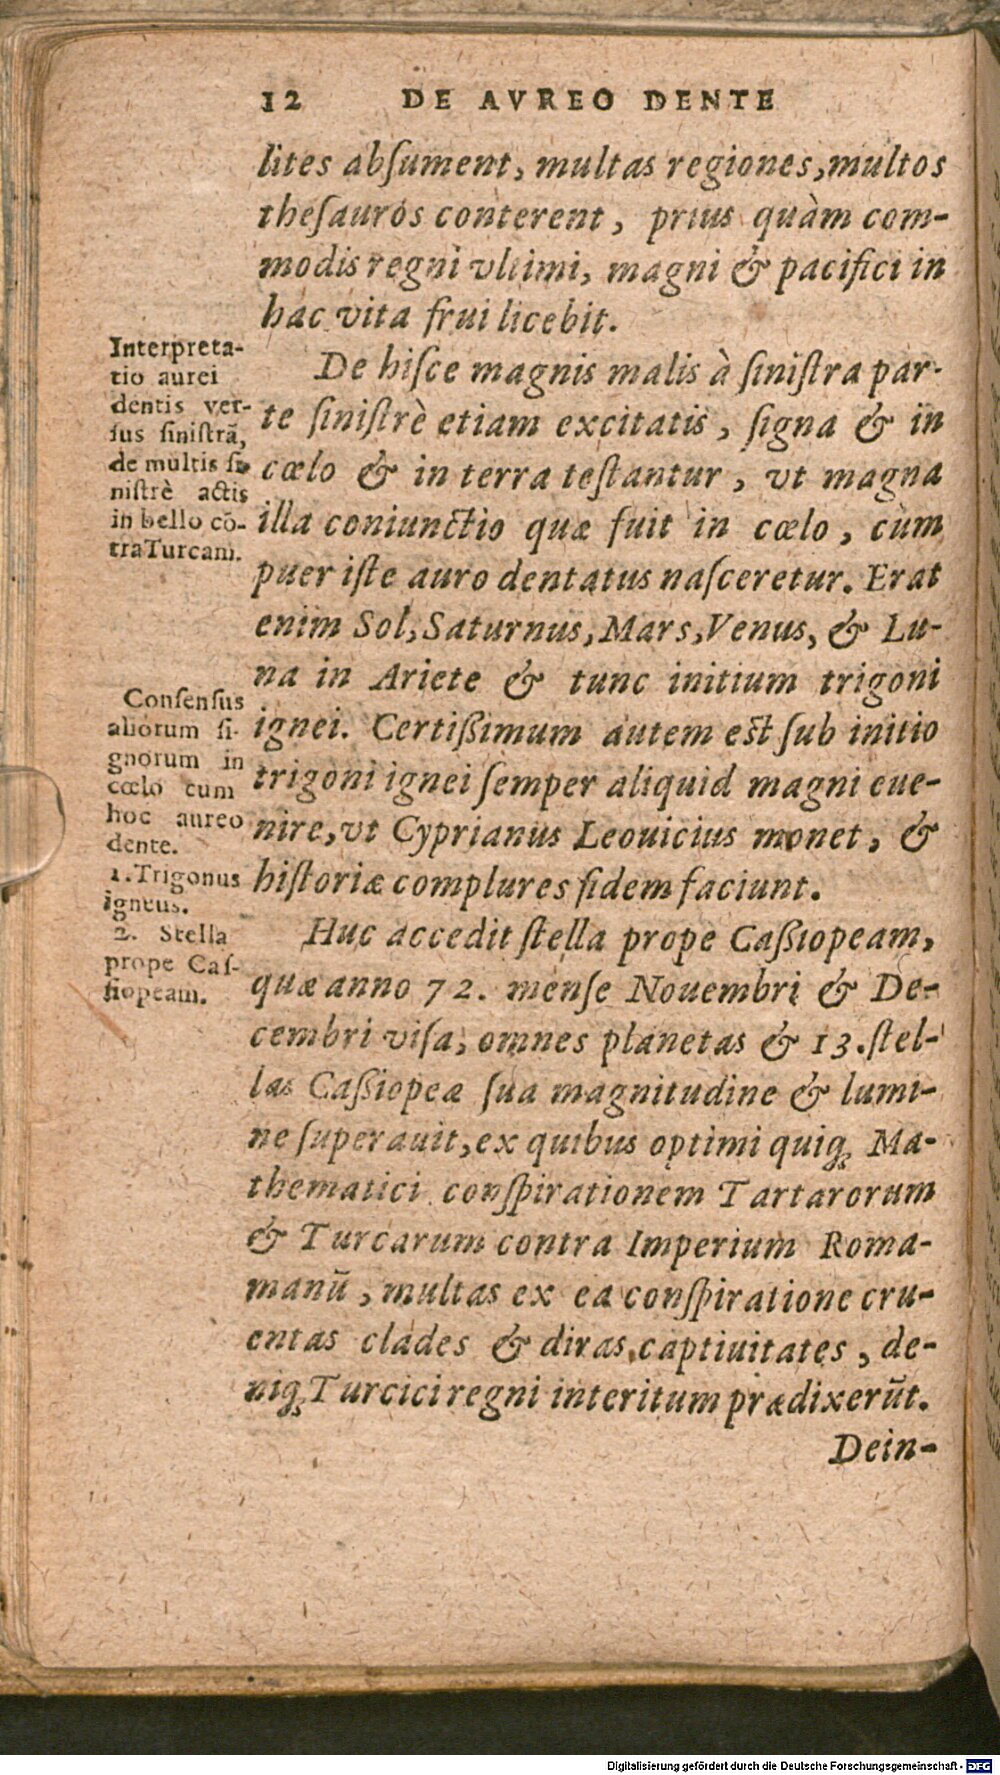 12 DE AVREO DENTE
lites abſument, multas regiones, multos
theſauros conterent, prius quàm com-
modis regni vltimi, magni & pacifici in
hac vita frui licebit.
De hiſce magnis malis à ſiniſtra par-
te ſiniſtrè etiam excitatis, ſigna & in
cœlo & in terra teſtantur, vt magna
illa coniunctio quæ fuit in cœlo, cùm
puer iſte auro dentatus naſceretur. Erat
enim Sol, Saturnus, Mars, Venus, & Lu-
na in Ariete & tunc initium trigoni
ignei. Certißimum autem eſt ſub initio
trigoni ignei ſemper aliquid magni eue-
nire, vt Cyprianus Leouicius monet, &
hiſtoriæ complures fidem faciunt.
Huc accedit ſtella prope Caßiopeam,
quæ anno 72. menſe Nouembri & De-
cembri viſa, omnes planetas & 13. ſtel-
las Caßiopeæ ſua magnitudine & lumi-
ne ſuperauit, ex quibus optimi quiq; Ma-
thematici conſpirationem Tartarorum
& Turcarum contra Imperium Roma-
manū, multas ex ea conſpiratione cru-
entas clades & diras captiuitates, de-
niq; Turcici regni interitum prædixerūt.
Dein-
Interpreta-
tio aurei
dentis ver-
ſus ſiniſtrā,
de multis ſi-
niſtrè actis
in bello cō-
tra Turcam.
Conſenſus
aliorum ſi-
gnorum in
cœlo cum
hoc aureo
dente.
1. Trigonus
igneus.
2. Stella
prope Caſ-
ſiopeam.
Digitalisierung gefördert durch die Deutsche Forschungsgemeinschaft - DFG